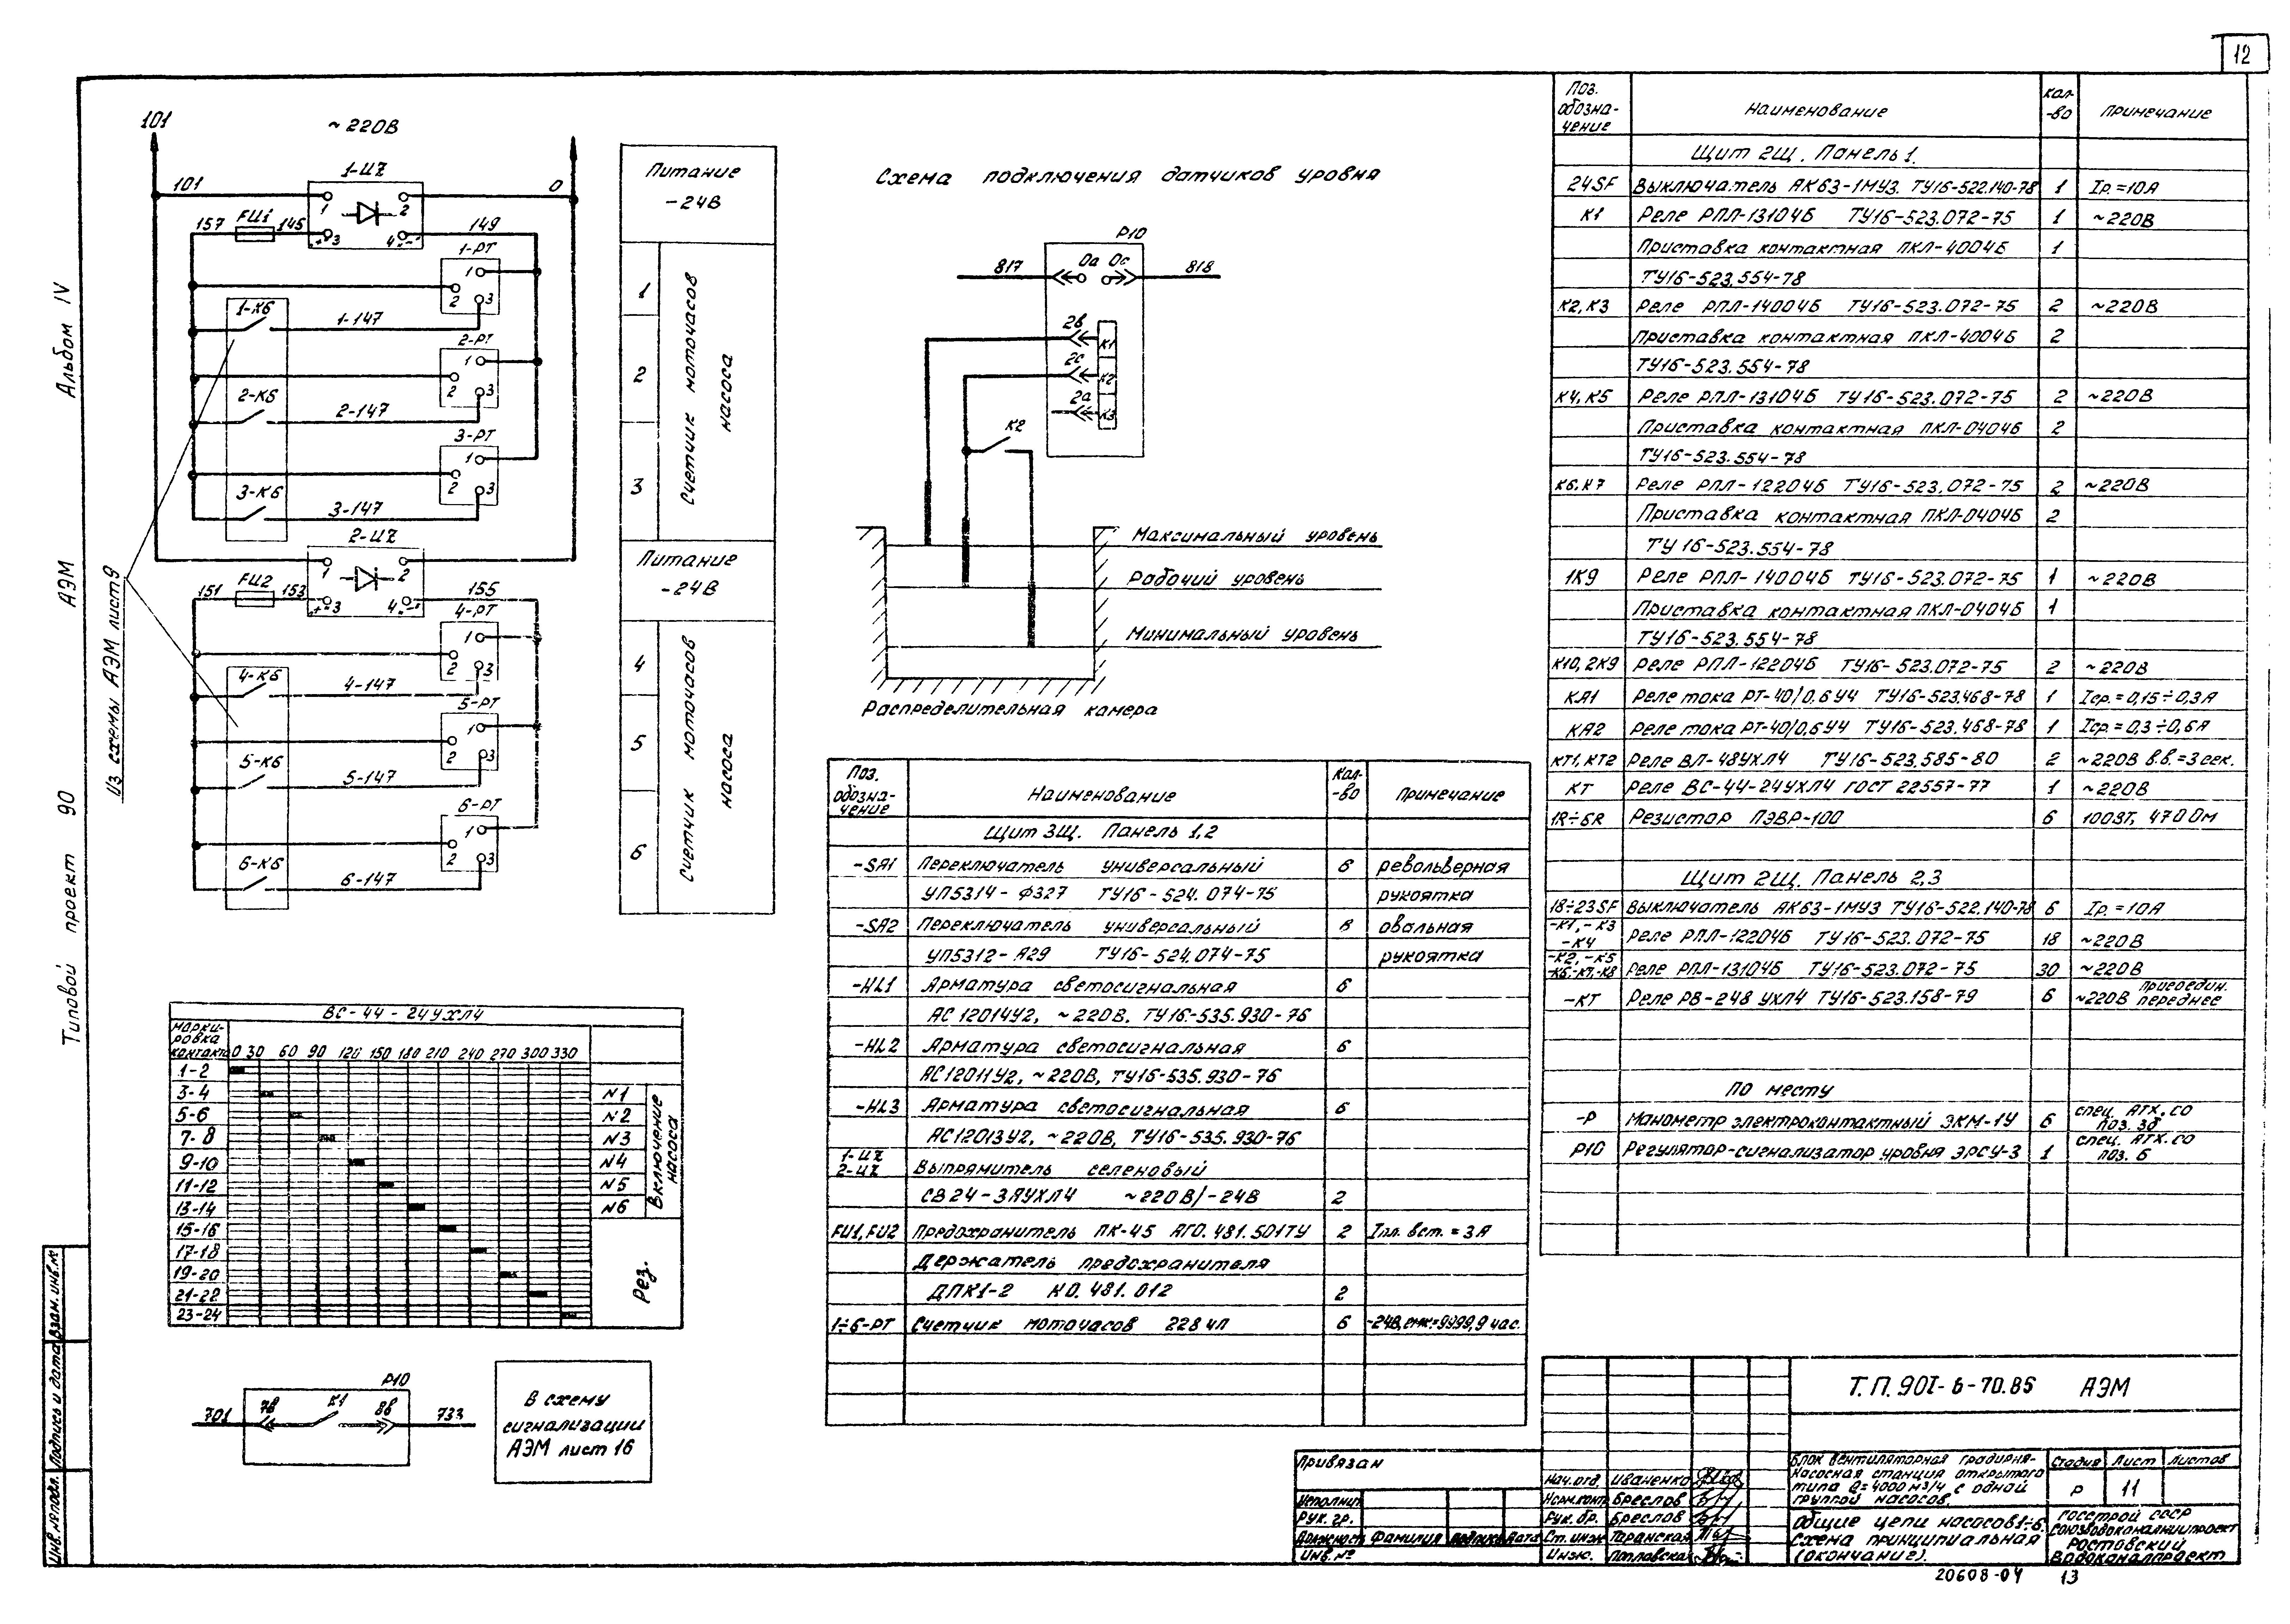 12
Альбом IV
АЭМ
Типовой проект 90
Из схемы АЭМ лист 9
101
~220В
101
1-UZ
0
1
2
157
FU1
145
"+"3
4"-"
149
1-РТ
1
2
3
1-К6
1-147
2-РТ
1
2
3
2-К6
2-147
3-РТ
1
2
3
3-К6
3-147
2-UZ
1
2
151
FU2
153
"+"3
4"-"
155
4-РТ
1
2
3
4-К6
4-147
5-РТ
1
2
3
5-К6
5-147
6-РТ
1
2
3
6-К6
6-147
Питание
-24В
1
2
3
Счетчик моточасов
насоса
Питание
-24В
4
5
6
Счетчик моточасов
насоса
Схема подключения датчиков уровня
Р10
817
0а 0с
818
2в
К1
2с
К2
2а
К3
К2
Максимальный уровень
Рабочий уровень
Минимальный уровень
Распределительная камера
ВС-44-24УХЛ4
марки-
ровка
контакта 0 30 60 90 120 150 180 210 240 270 300 330
1-2
3-4 N1
5-6 N2
7-8 N3
9-10 N4
11-12 N5
13-14 N6
15-16
17-18
19-20
21-22
23-24
Включение
насоса
Рез.
Р10
701
7в
К1
8в
733
В схему
сигнализации
АЭМ лист 16
Поз.
обозна-
чение
Наименование
Кол-
-во
Примечание
Щит 3Щ. Панель 1,2
-SA1 Переключатель универсальный 6 револьверная
УП5314-Ф327 ТУ16-524.074-75 рукоятка
-SA2 Переключатель универсальный 6 овальная
УП5312-А29 ТУ16-524.074-75 рукоятка
-HL1 Арматура светосигнальная 6
АС12014У2, ~220В, ТУ16-535.930-76
-HL2 Арматура светосигнальная 6
АС12011У2, ~220В, ТУ16-535.930-76
-HL3 Арматура светосигнальная 6
АС12013У2, ~220В, ТУ16-535.930-76
1-UZ
2-UZ Выпрямитель селеновый
СВ24-3АУХЛ4 ~220В/-24В 2
FU1, FU2 Предохранитель ПК-45 АГО.481.501ТУ 2 Iпл. вст. = 3А
Держатель предохранителя
ДПК1-2 НО.481.012 2
1÷6-РТ Счетчик моточасов 228чп 6 -24В, емк.=9999,9 час.
Поз.
обозна-
чение
Наименование
кол-
-во
Примечание
Щит 2Щ. Панель 1.
24SF Выключатель АК63-1МУ3. ТУ16-522.140-78 1 Iр.=10А
К1 Реле РПЛ-13104Б ТУ16-523.072-75 1 ~220В
Приставка контактная ПКЛ-4004Б 1
ТУ16-523.554-78
К2, К3 Реле РПЛ-14004Б ТУ16-523.072-75 2 ~220В
Приставка контактная ПКЛ-4004Б 2
ТУ16-523.554-78
К4, К5 Реле РПЛ-13104Б ТУ16-523.072-75 2 ~220В
Приставка контактная ПКЛ-0404Б 2
ТУ16-523.554-78
К6, К7 Реле РПЛ-12204Б ТУ16-523.072-75 2 ~220В
Приставка контактная ПКЛ-0404Б 2
ТУ16-523.554-78
1К9 Реле РПЛ-14004Б ТУ16-523.072-75 1 ~220В
Приставка контактная ПКЛ-0404Б 1
ТУ16-523.554-78
К10, 2К9 Реле РПЛ-12204Б ТУ16-523.072-75 2 ~220В
КА1 Реле тока РТ-40/0,6У4 ТУ16-523.468-78 1 Iср.=0,15÷0,3А
КА2 Реле тока РТ-40/0,6У4 ТУ16-523.468-78 1 Iср.=0,3÷0,6А
КТ1, КТ2 Реле ВЛ-48УХЛ4 ТУ16-523.585-80 2 ~220В в.в.=3сек.
КТ Реле ВС-44-24УХЛ4 ГОСТ 22557-77 1 ~220В
1R÷6R Резистор ПЭВР-100 6 100Вт, 470 Ом
Щит 2Щ. Панель 2,3
18÷23SF Выключатель АК63-1МУ3 ТУ16-522.140-78 6 Iр.=10А
-К1, -К3
-К4 Реле РПЛ-12204Б ТУ16-523.072-75 18 ~220В
-К2, -К5
-К6, -К7, -К8 Реле РПЛ-13104Б ТУ16-523.072-75 30 ~220В
-КТ Реле РВ-248 УХЛ4 ТУ16-523.158-79 6 ~220В присоедин. переднее
По месту
-Р Манометр электроконтактный ЭКМ-1У 6 спец. АТХ.СО поз. 3б
Р10 Регулятор-сигнализатор уровня ЭРСУ-3 1 спец. АТХ.СО поз. 6
Т.П. 901-6-70.85 АЭМ
Привязан
Исполнил
Рук. гр.
Должность Фамилия Подпись Дата
Инв. №
Нач. отд. Иваненко
Норм. конт. Бреслов
Рук. бр. Бреслов
Ст. инж. Таранская
Инж. Поплавская
Блок вентиляторная градирня-
насосная станция открытого
типа Q=4000 м3/ч с одной
группой насосов.
Стадия Лист Листов
Р 11
Общие цепи насосов 1÷6.
Схема принципиальная
(окончание).
Госстрой СССР
Союзводоканалниипроект
Ростовский
Водоканалпроект
20608-04 13
Инв. № подл. Подпись и дата Взам. инв. №